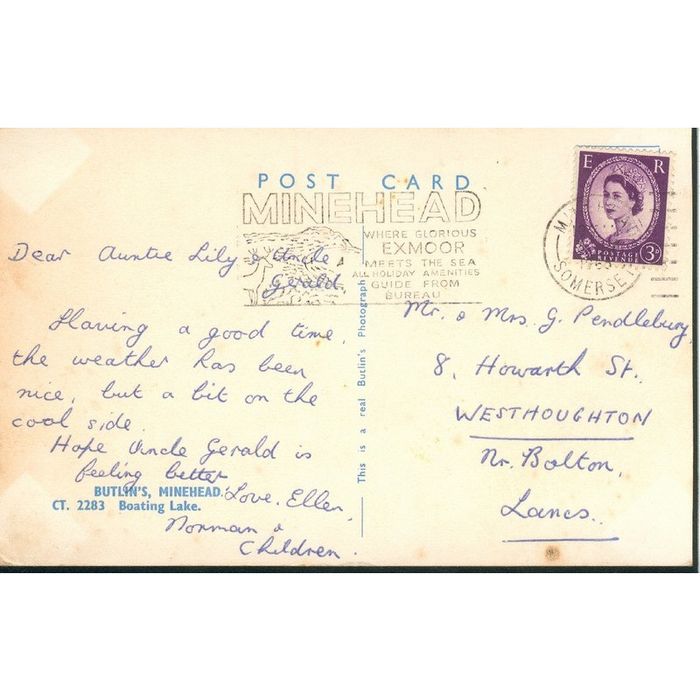 POST CARD
MINEHEAD
WHERE GLORIOUS
EXMOOR
MEETS THE SEA
ALL HOLIDAY AMENITIES
GUIDE FROM
BUREAU
E R
POSTAGE
REVENUE
3D
SOMERSE
Dear Auntie Lily & Uncle
Gerald
Having a good time,
the weather has been
nice, but a bit on the
cool side.
Hope Uncle Gerald is
feeling better
Love. Ellen,
Norman &
Children.
BUTLIN'S, MINEHEAD.
CT. 2283 Boating Lake.
This is a real Butlin's Photograph
Mr. & Mrs. G. Pendlebury,
8, Howarth St.
WESTHOUGHTON
Nr. Bolton,
Lancs.